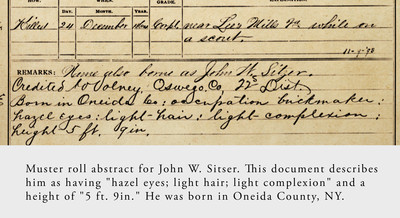 HOW. DAY. MONTH. YEAR. GRADE.
Killed 24 December 1864 Corpl near Lee's Mills Va while on
a scout.
11-5-98
REMARKS: Name also borne as John W. Sitzer.
Credited to Volney, Oswego, Co, 22d Dist.
Born in Oneida Co: occupation brickmaker:
hazel eyes: light-hair: light-complexion:
height 5 ft. 9in.
Muster roll abstract for John W. Sitser. This document describes
him as having "hazel eyes; light hair; light complexion" and a
height of "5 ft. 9in." He was born in Oneida County, NY.